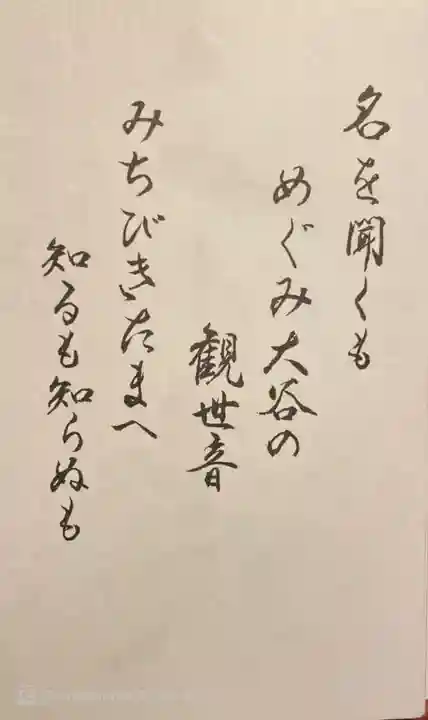 名を聞くも
めぐみ大谷の
観世音
みちびきたまへ
知るも知らぬも